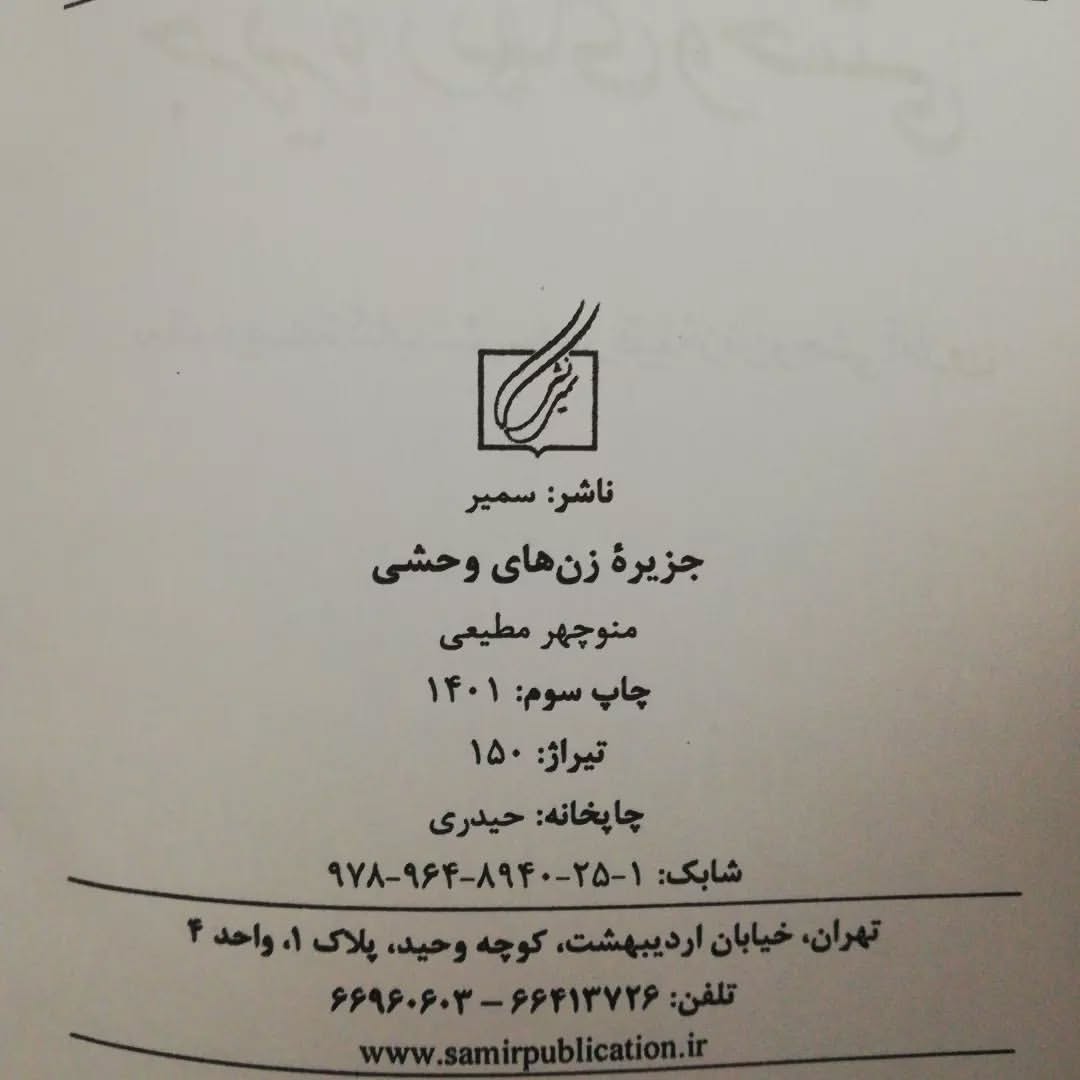 نشر سمیر
ناشر: سمیر
جزیرهٔ زن‌های وحشی
منوچهر مطیعی
چاپ سوم: ۱۴۰۱
تیراژ: ۱۵۰
چاپخانه: حیدری
شابک: ۱-۲۵-۸۹۴۰-۹۶۴-۹۷۸
تهران، خیابان اردیبهشت، کوچه وحید، پلاک ۱، واحد ۴
تلفن: ۶۶۴۱۳۷۲۶ – ۶۶۹۶۰۶۰۳
www.samirpublication.ir